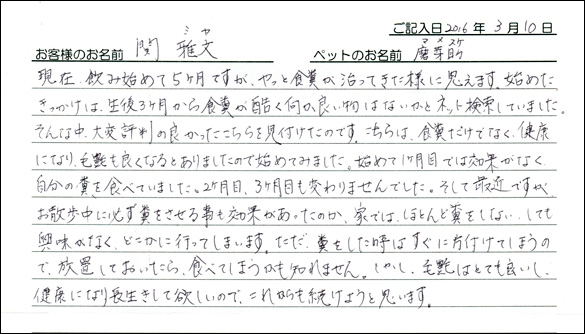 ご記入日2016年 3月10日
シャ マメスケ
お客様のお名前 関 雅文 ペットのお名前 磨芽助
現在、飲み始めて5ヶ月ですが、やっと食糞が治ってきた様に思えます。始めた
きっかけは、生後3ヶ月から食糞が酷く何か良い物はないかとネット検索していました。
そんな中、大変評判の良かったこちらを見付けたのです。こちらは、食糞だけでなく、健康
になり、毛艶も良くなるとありましたので始めてみました。始めて1ヶ月目では効果がなく
自分の糞を食べていました。2ヶ月目、3ヶ月目も変わりませんでした。そして最近ですが、
お散歩中に必ず糞をさせる事も効果があったのか、家では、ほとんど糞をしない、しても
興味がなく、どこかに行ってしまいます。ただ、糞をした時はすぐに片付けてしまうの
で、放置しておいたら、食べてしまうかも知れません。しかし、毛艶はとても良いし、
健康になり長生きして欲しいので、これからも続けようと思います。